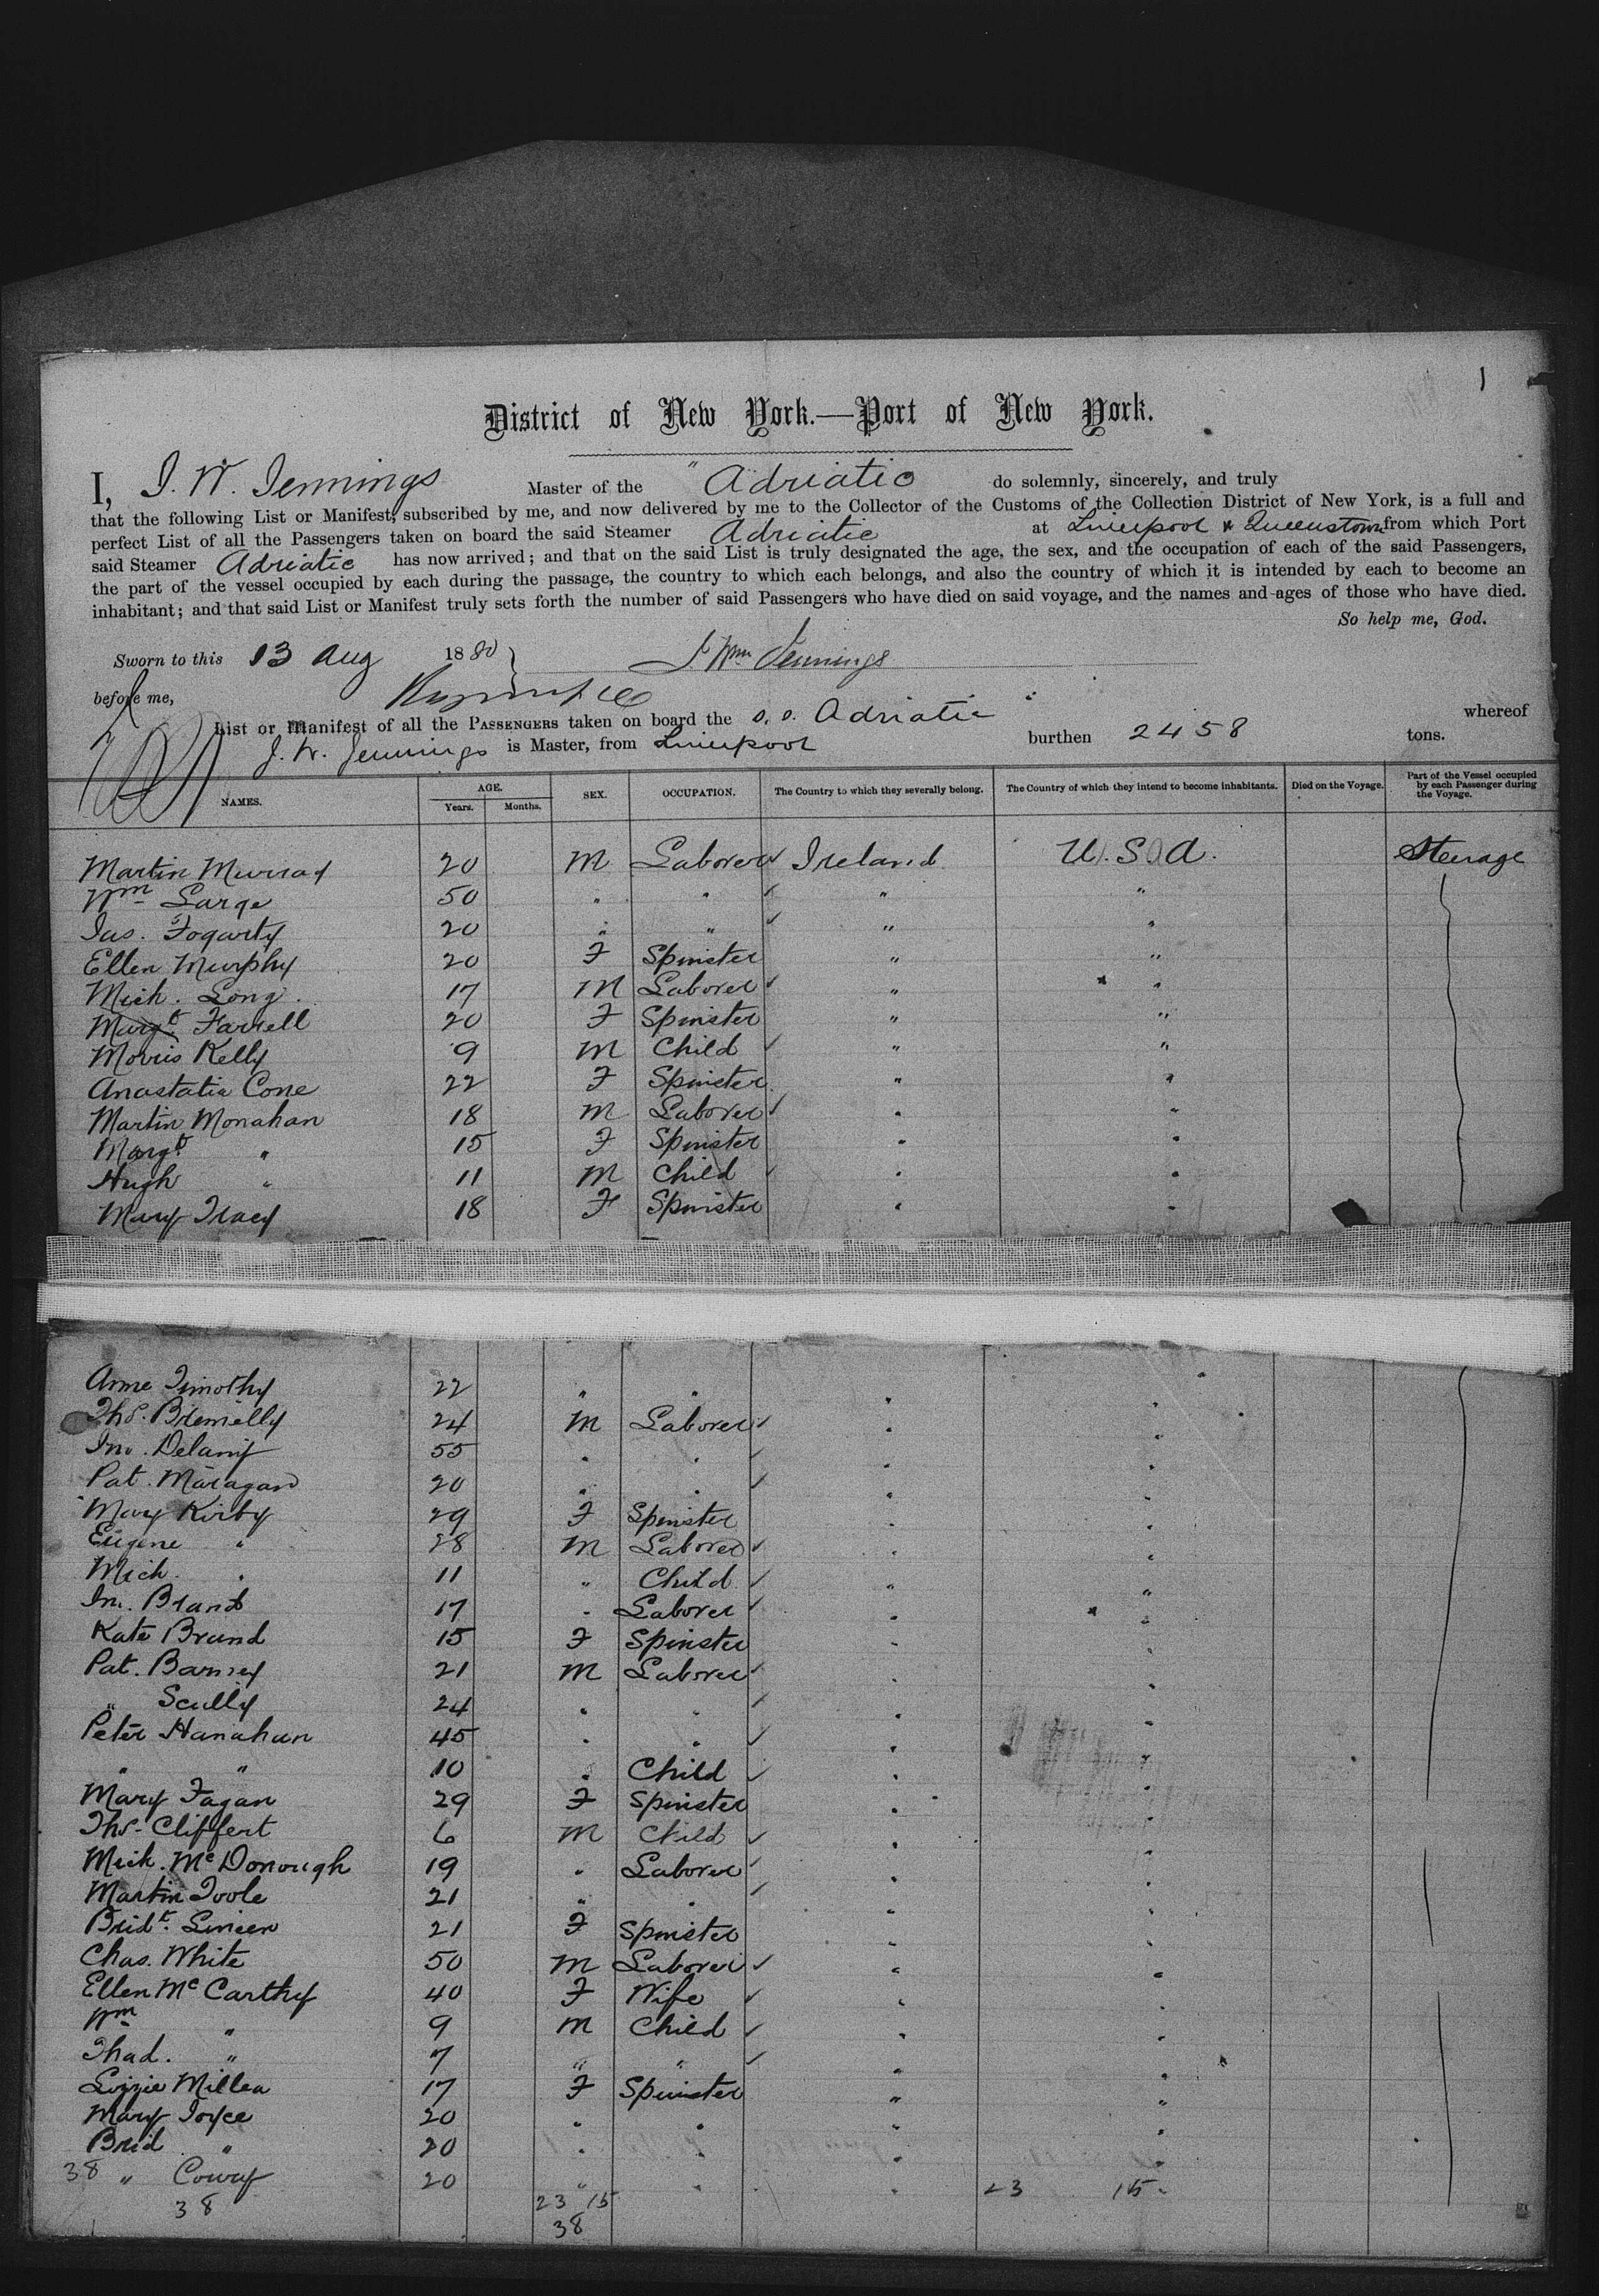 1
District of New York.—Port of New York.
I, J. W. Jennings Master of the " Adriatic do solemnly, sincerely, and truly
that the following List or Manifest, subscribed by me, and now delivered by me to the Collector of the Customs of the Collection District of New York, is a full and
perfect List of all the Passengers taken on board the said Steamer Adriatic at Liverpool & Queenstown from which Port
said Steamer Adriatic has now arrived; and that on the said List is truly designated the age, the sex, and the occupation of each of the said Passengers,
the part of the vessel occupied by each during the passage, the country to which each belongs, and also the country of which it is intended by each to become an
inhabitant; and that said List or Manifest truly sets forth the number of said Passengers who have died on said voyage, and the names and ages of those who have died.
So help me, God.
Sworn to this 13 Aug 1880 J. Wm Jennings
before me,
List or Manifest of all the Passengers taken on board the s. s. Adriatic whereof
J. W. Jennings is Master, from Liverpool burthen 2458 tons.
NAMES. AGE. Years. Months. SEX. OCCUPATION. The Country to which they severally belong. The Country of which they intend to become inhabitants. Died on the Voyage. Part of the Vessel occupied by each Passenger during the Voyage.
Martin Murray 20 M Laborer Ireland U.S.A. Steerage
Wm Large 50 " " " "
Jas. Fogarty 20 " " " "
Ellen Murphy 20 F Spinster " "
Mich. Long 17 M Laborer " "
Margt Farrell 20 F Spinster " "
Morris Kelly 9 M Child " "
Anastatia Cone 22 F Spinster " "
Martin Monahan 18 M Laborer " "
Margt " 15 F Spinster " "
Hugh " 11 M Child " "
Mary Tracy 18 F Spinster " "
Anne Timothy 22 " " " "
Thos. Brennelly 24 M Laborer " "
Jno. Delany 55 " " " "
Pat. Maragan 20 " " " "
Mary Kirby 29 F Spinster " "
Eugene " 28 M Laborer " "
Mich. " 11 " Child " "
Jno. Brand 17 " Laborer " "
Kate Brand 15 F Spinster " "
Pat. Barney 21 M Laborer " "
" Scully 24 " " " "
Peter Hanahan 45 " " " "
" " 10 " Child " "
Mary Fagan 29 F Spinster " "
Thos. Cliffert 6 M Child " "
Mich. McDonough 19 " Laborer " "
Martin Toole 21 " " " "
Bridt. Lineen 21 F Spinster " "
Chas. White 50 M Laborer " "
Ellen McCarthy 40 F Wife " "
Wm " 9 M Child " "
Thad. " 7 " " " "
Lizzie Millea 17 F Spinster " "
Mary Joyce 20 " " " "
Brid " 20 " " " "
38 " Cowry 20 " " " "
38 23 15 23 15
38